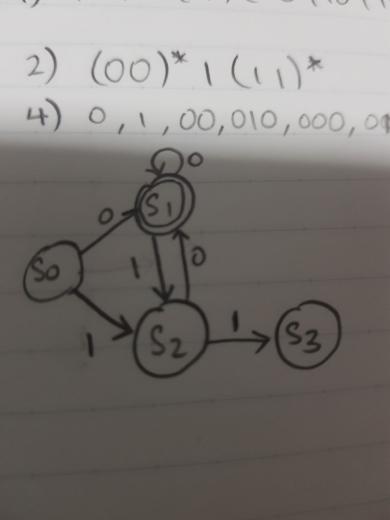 2) (00)* 1 (11)*
4) 0, 1, 00, 010, 000,
0
0
S1
1
0
S0
1
S2
1
S3